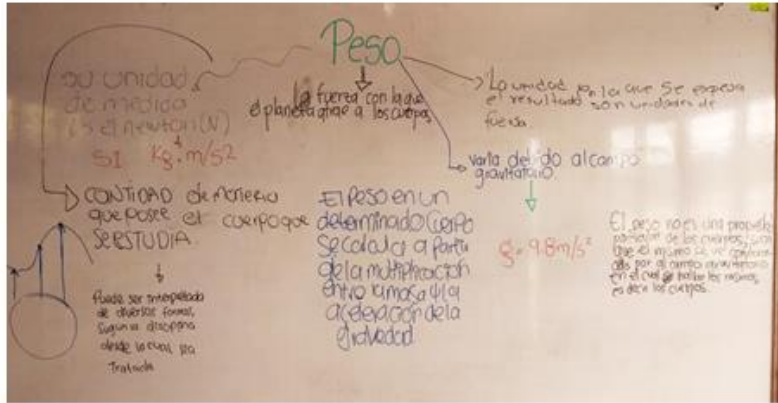 Peso
su unidad
de medida
es el newton (N)
SI Kg . m/s2
La fuerza con la que
el planeta atrae a los cuerpos
La unidad en la que se expresa
el resultado son unidades de
fuerza.
varia debido al campo
gravitatorio
g = 9.8 m/s²
CANTIDAD de materia
que posee el cuerpo que
SE ESTUDIA
Puede ser interpretado
de diversas formas,
segun la disciplina
desde la cual sea
Tratada
El Peso en un
determinado cuerpo
se calcula a partir
de la multiplicación
entre la masa y la
aceleración de la
gravedad
El peso no es una propiedad
de los cuerpos, sino
que el mismo se ve
por el campo gravitatorio
en el cual se los mismos,
es decir los cuerpos.